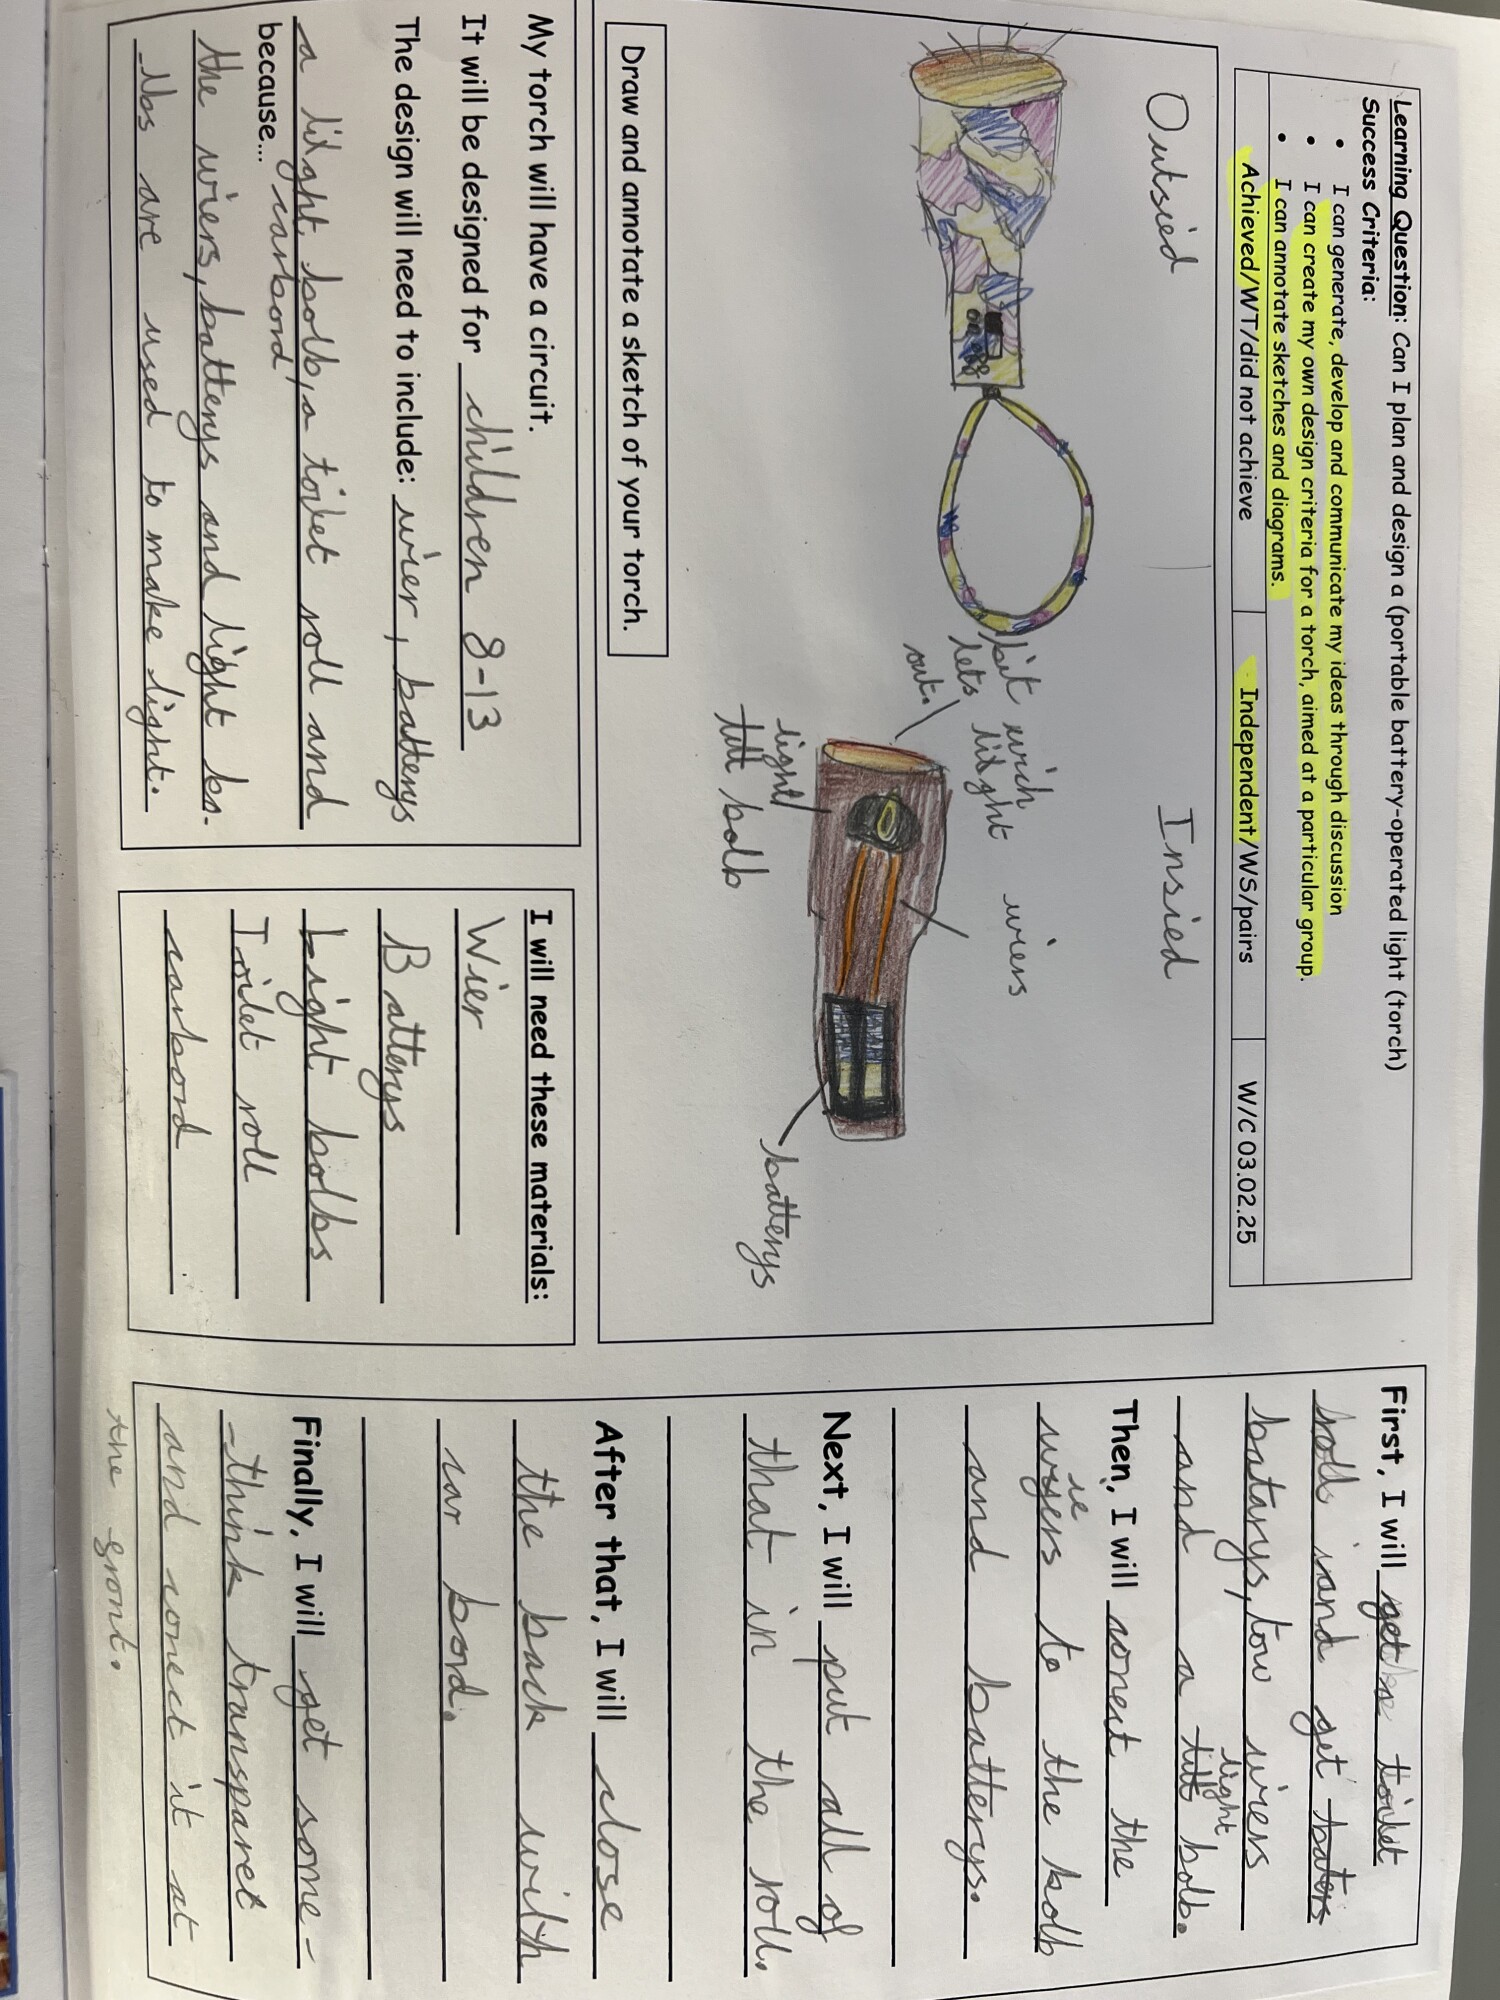 Learning Question: Can I plan and design a (portable battery-operated light (torch)
Success Criteria:
• I can generate, develop and communicate my ideas through discussion
• I can create my own design criteria for a torch, aimed at a particular group.
• I can annotate sketches and diagrams.
Achieved/WT/did not achieve
Independent/WS/pairs
W/C 03.02.25
Outsied
Insied
on off
bit wich
lets litght
out.
wiers
light
bolb
batterys
Draw and annotate a sketch of your torch.
My torch will have a circuit.
It will be designed for children 8-13
The design will need to include: wier, batterys
a litght bolb, a toilet roll and
carbord
because...
the wiers, batterys and light bo-
lbs are used to make light.
I will need these materials:
Wier
Batterys
Light bolbs
Toilet roll
carbord
First, I will get toilet
rolls and get
batarys, tow wiers
and a light bolb.
Then, I will conect the
wiers to the bolb
and batterys.
Next, I will put all of
that in the roll.
After that, I will close
the back with
car bord.
Finally, I will get some-
think transparet
and conect it at
the front.